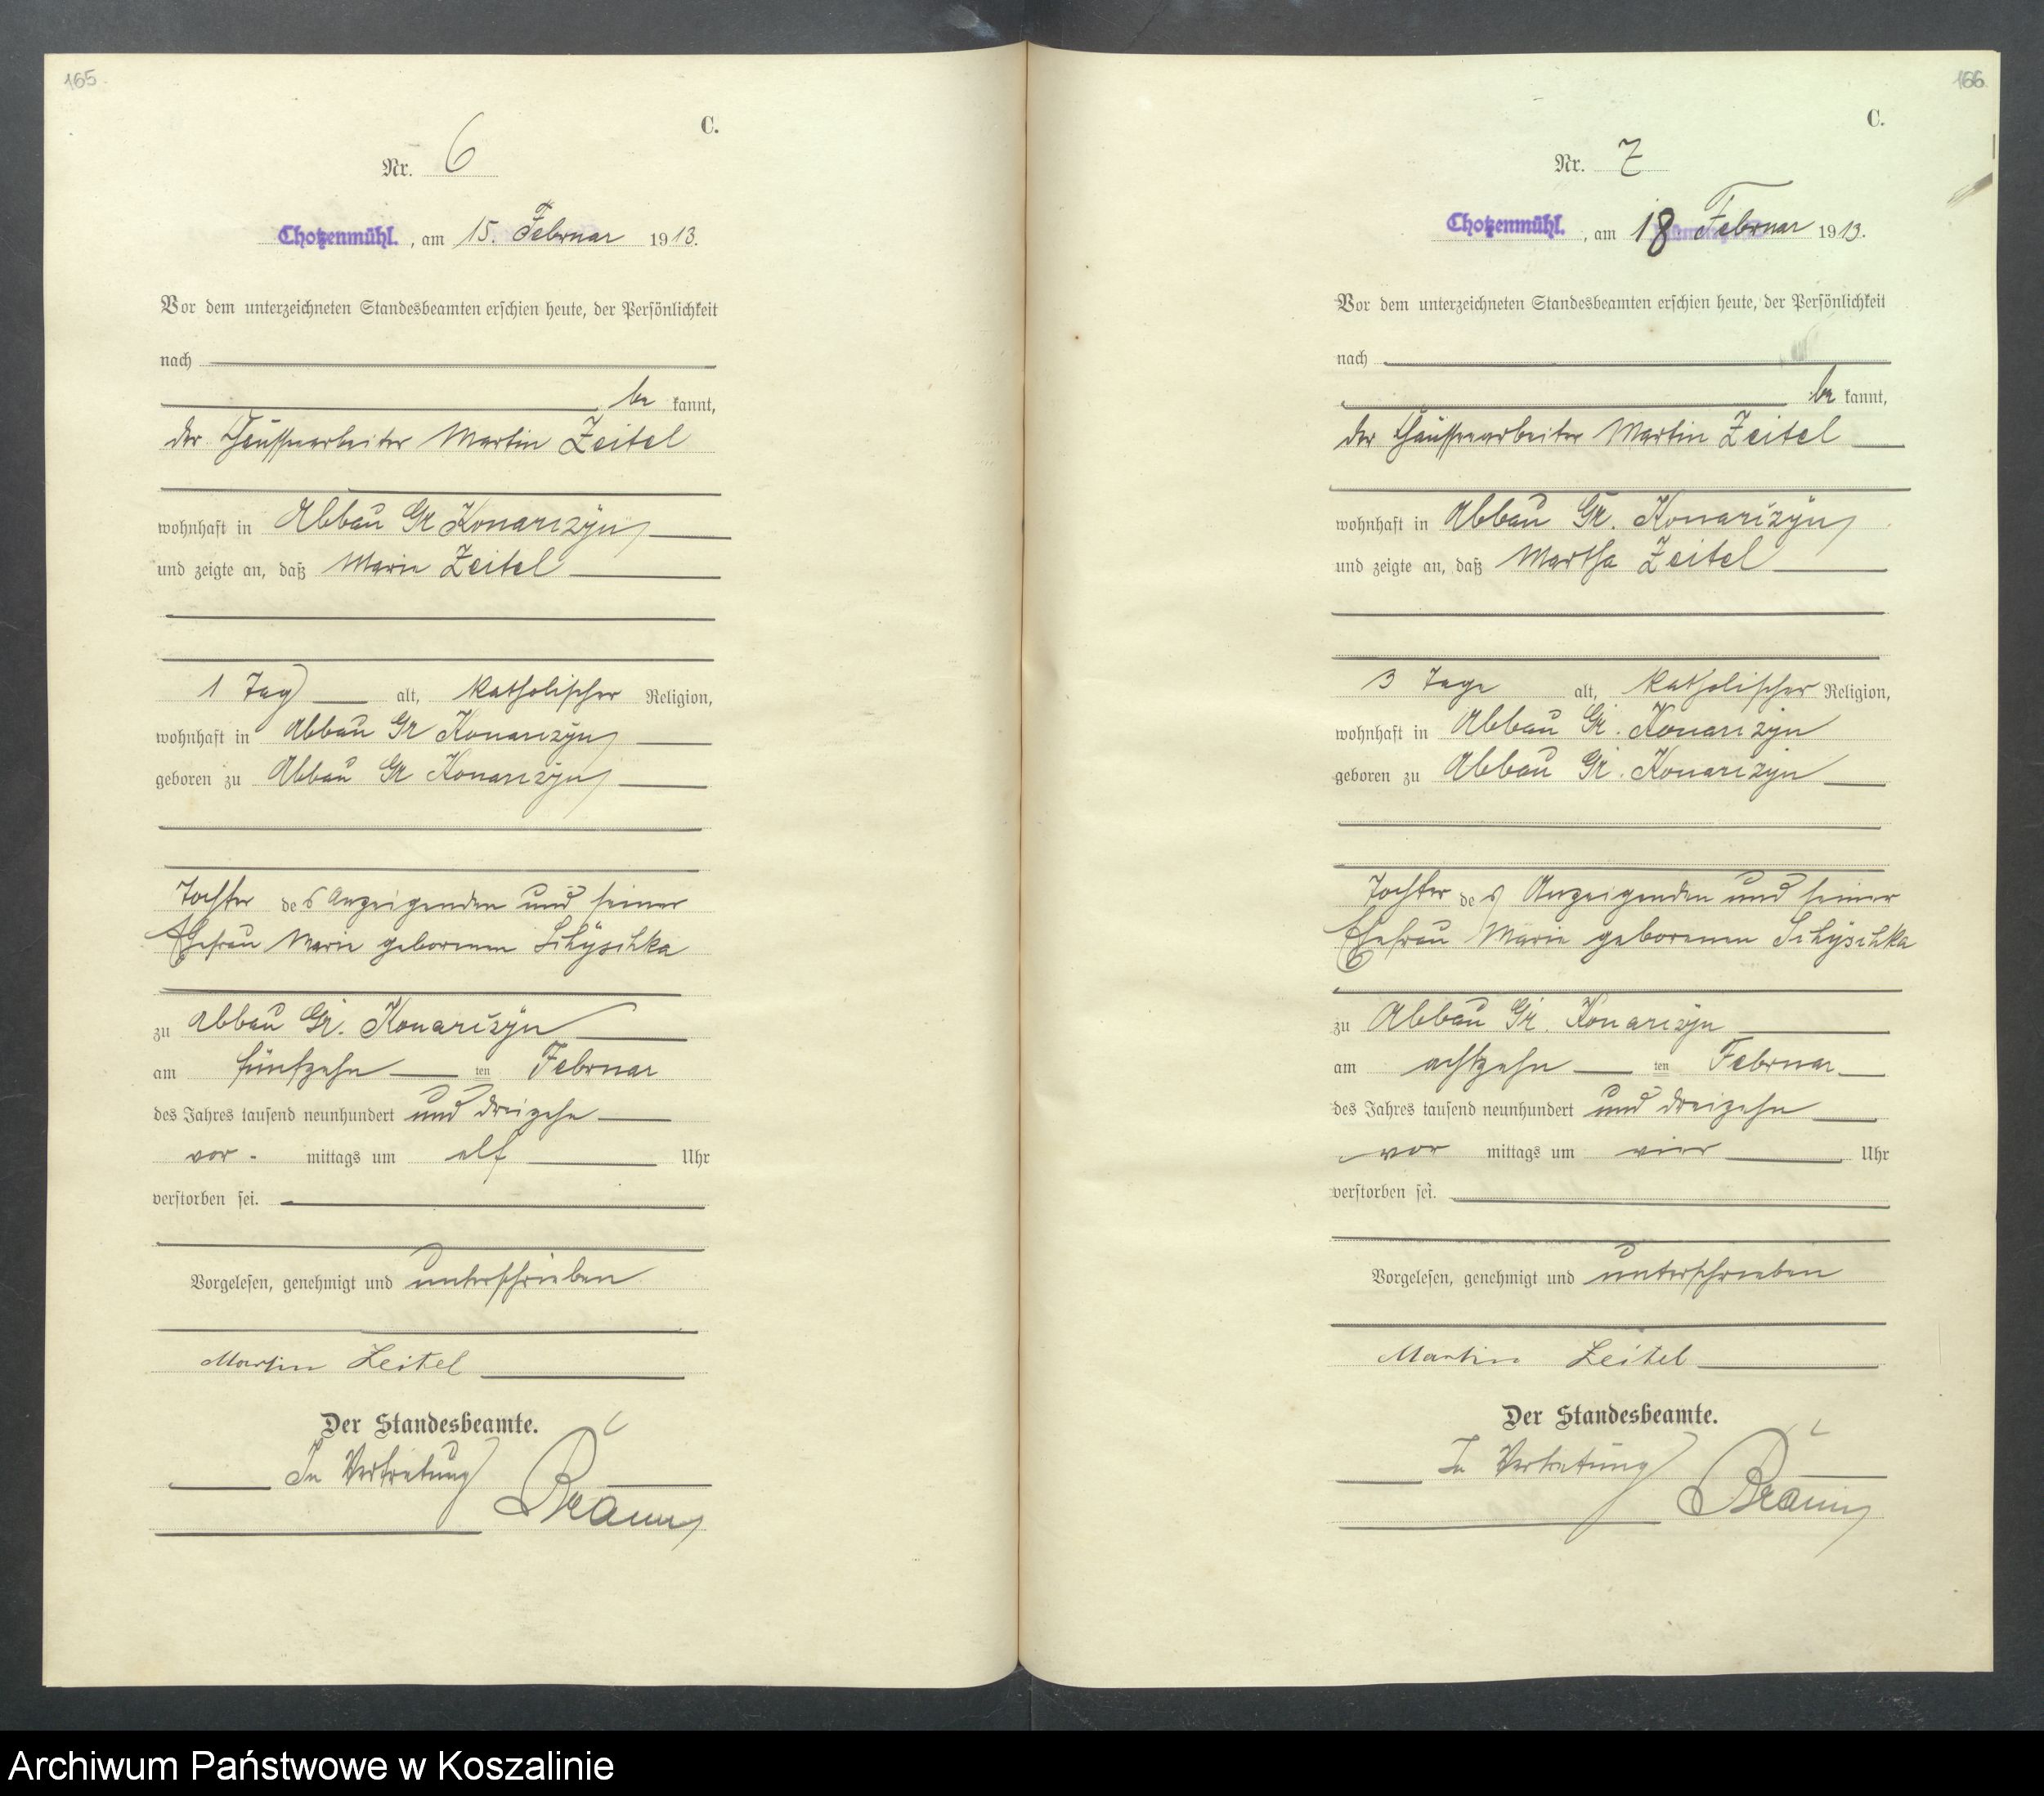 165.
C.
Nr. 6
Chotzenmühl. , am 15. Februar 1913.
Vor dem unterzeichneten Standesbeamten erschien heute, der Persönlichkeit
nach
be kannt,
der Chausseearbeiter Martin Zeitel
wohnhaft in Abbau Gr Konarczyn
und zeigte an, daß Marie Zeitel
1 Tag alt, katholischer Religion,
wohnhaft in Abbau Gr Konarczyn
geboren zu Abbau Gr Konarczyn
Tochter des Anzeigenden und seiner
Ehefrau Marie geborenen
zu Abbau Gr. Konarczyn
am fünfzehn ten Februar
des Jahres tausend neunhundert und dreizehn
vor - mittags um elf Uhr
verstorben sei.
Vorgelesen, genehmigt und unterschrieben
Martin Zeitel
Der Standesbeamte.
In Vertretung Braun
166
C.
Nr. 7
Chotzenmühl. , am 18 Februar 1913.
Vor dem unterzeichneten Standesbeamten erschien heute, der Persönlichkeit
nach
be kannt,
der Chausseearbeiter Martin Zeitel
wohnhaft in Abbau Gr. Konarczyn
und zeigte an, daß Martha Zeitel
3 Tage alt, katholischer Religion,
wohnhaft in Abbau Gr. Konarczyn
geboren zu Abbau Gr. Konarczyn
Tochter des Anzeigenden und seiner
Ehefrau Marie geborenen
zu Abbau Gr. Konarczyn
am achtzehn ten Februar
des Jahres tausend neunhundert und dreizehn
vor mittags um vier Uhr
verstorben sei.
Vorgelesen, genehmigt und unterschrieben
Martin Zeitel
Der Standesbeamte.
In Vertretung Braun
Archiwum Państwowe w Koszalinie